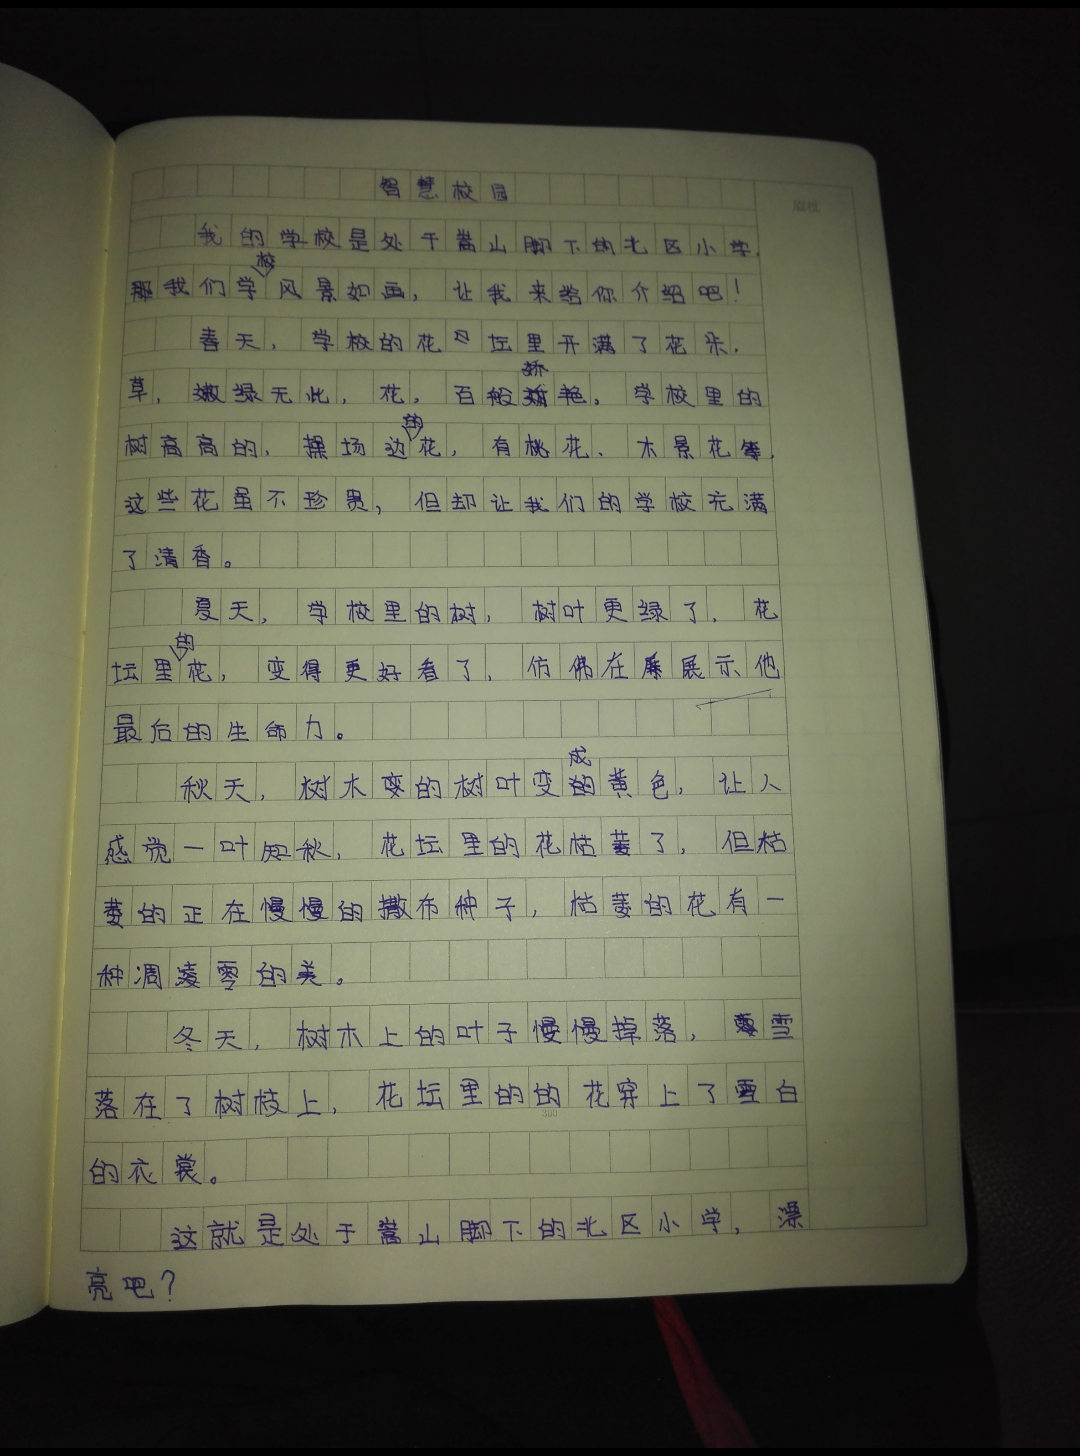 智慧校园
我的学校是处于嵩山脚下的北区小学,
我们学校风景如画，让我来给你介绍吧！
春天，学校的花坛里开满了花朵,
草，嫩绿无比，花，百般娇艳。学校里的
树高高的，操场边的花，有桃花、木景花等,
这些花虽不珍贵，但却让我们的学校充满
了清香。
夏天，学校里的树，树叶更绿了，花
坛里的花，变得更好看了，仿佛在展示他
最后的生命力。
秋天，树木变的树叶变成黄色，让人
感觉一叶知秋，花坛里的花枯萎了，但枯
萎的正在慢慢的撒布种子，枯萎的花有一
种凋零的美。
冬天，树木上的叶子慢慢掉落，雪
落在了树枝上，花坛里的的花穿上了雪白
的衣裳。
这就是处于嵩山脚下的北区小学，漂
亮吧？
300